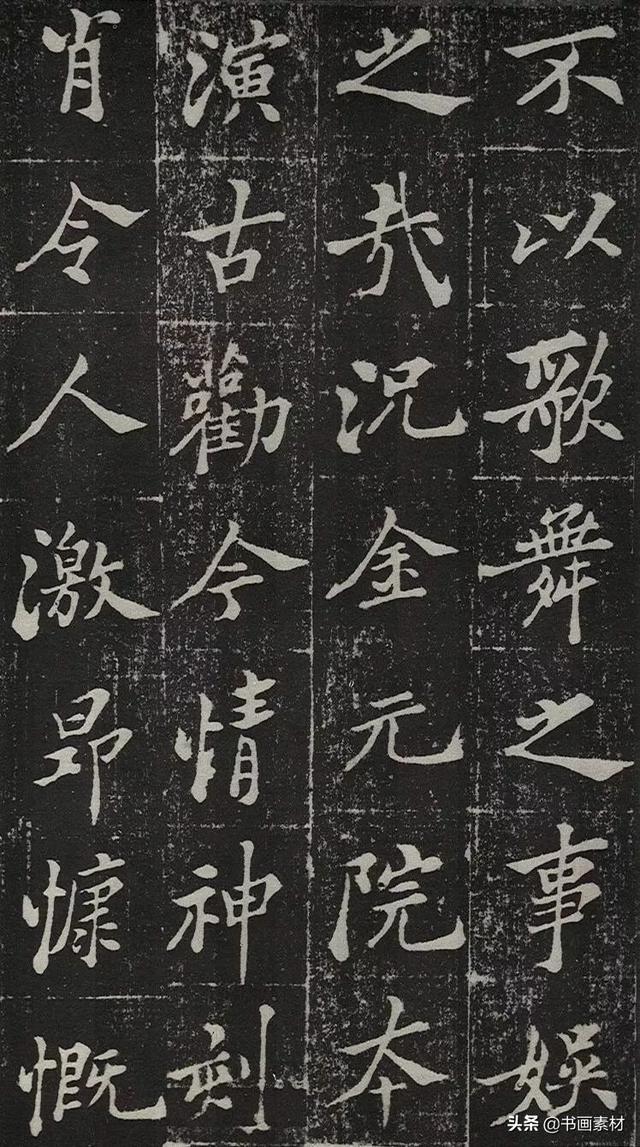 不以歌舞之事娛
之哉況金元院本
演古勸今情神刻
肖令人激昂慷慨
头条 @书画素材